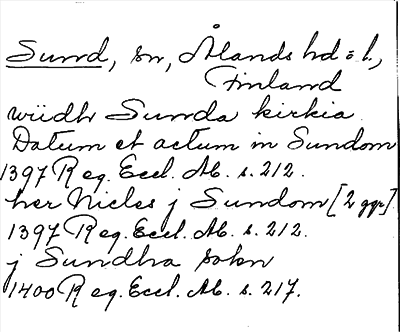 Sund, sn, Ålands hd o l.,
Finland
wiidh Sunda kirkia
Datum et actum in Sundom
1397 Reg. Eccl. Ab. s. 212.
her Nicles j Sundom [2 ggr]
1397 Reg. Eccl. Ab. s. 212.
j Sundha sokn
1400 Reg. Eccl. Ab. s. 217.